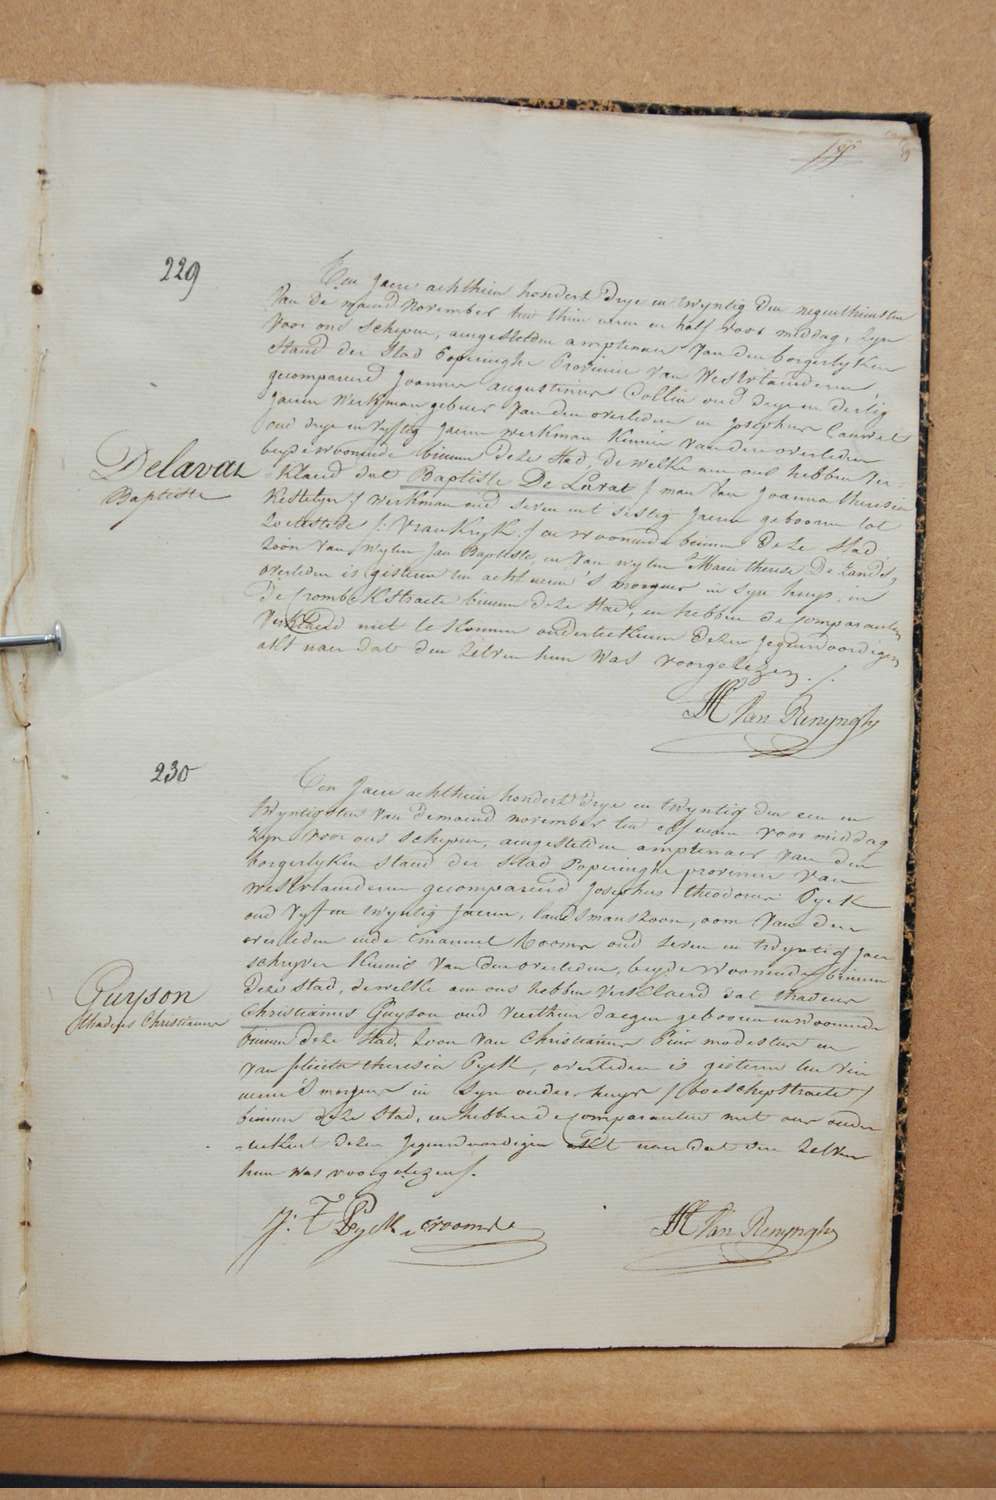 229
Ten Jaere achthien hondert drye en twyntig den negenthiensten
Van de maend November ten thien uren en half voor middag, Zyn
Voor ons Schepen, aengestelden amptenaer Van den borgerlyken
Stand der Stad Poperinghe Provincie Van Westvlaenderen
gecompareerd Joannes augustinus Collin oud drye en dertig
Jaeren Werkman gebuer Van den overleden en Josephus Cauwel
oud drye en Vyftig Jaeren werkman Kennis van den overleden
beyde woonende binnen deze Stad, de welke aen ons hebben Ver
Klaerd dat Baptiste De Lavat / man Van Joanna theresia
Kestelyn / Werkman oud seven ent Sestig Jaeren geboren tot
/: Vrankryk :/ en woonende binnen deze Stad
Zoon Van wylen Jan Baptiste, en Van wylen Marie therese De
overleden is gisteren ten acht uren 's morgens in Syn huys, in
de Crombekstraete binnen deze Stad, en hebben de Comparanten
Verklaerd niet te Konnen onderteekenen dezen Jegenwoordigen
akt naer dat den Zelven hun was voorgelezen ./.
Delavat
Baptiste
Van Renynghe
230
Ten Jaere achthien hondert drye en twyntig den een en
twyntigsten Van de maend november ten elf uren voor middag
Zyn Voor ons Schepen, aengestelden amptenaer van den
borgerlyken Stand der Stad Poperinghe provincie Van
Westvlaenderen gecompareerd Josephus theodorus Pyck
oud Vyf en twyntig Jaeren, landsmans zoon, oom Van den
overleden ende Emanuel Cooms oud Seven en twyntig Jaer
schryver Kennis Van den overleden, beyde Woonende binnen
deze Stad, de welke aen ons hebben Verklaerd dat thadeus
Christianus Guyson oud Veerthien daegen geboren en woonende
binnen deze Stad, Zoon Van Christianus Pier modestus en
Van felicita theresia Pyck, overleden is gisteren ten vier
uren 's morgens in Syn ouders huys / boeschepstraete /
binnen deze Stad, en hebben de Comparanten met ons onder
-teekent dezen Jegenwoordigen akt naer dat den Zelven
hun was voorgelezen /.
Guyson
thadeus Christianus
J: T Pyck
Van Renynghe